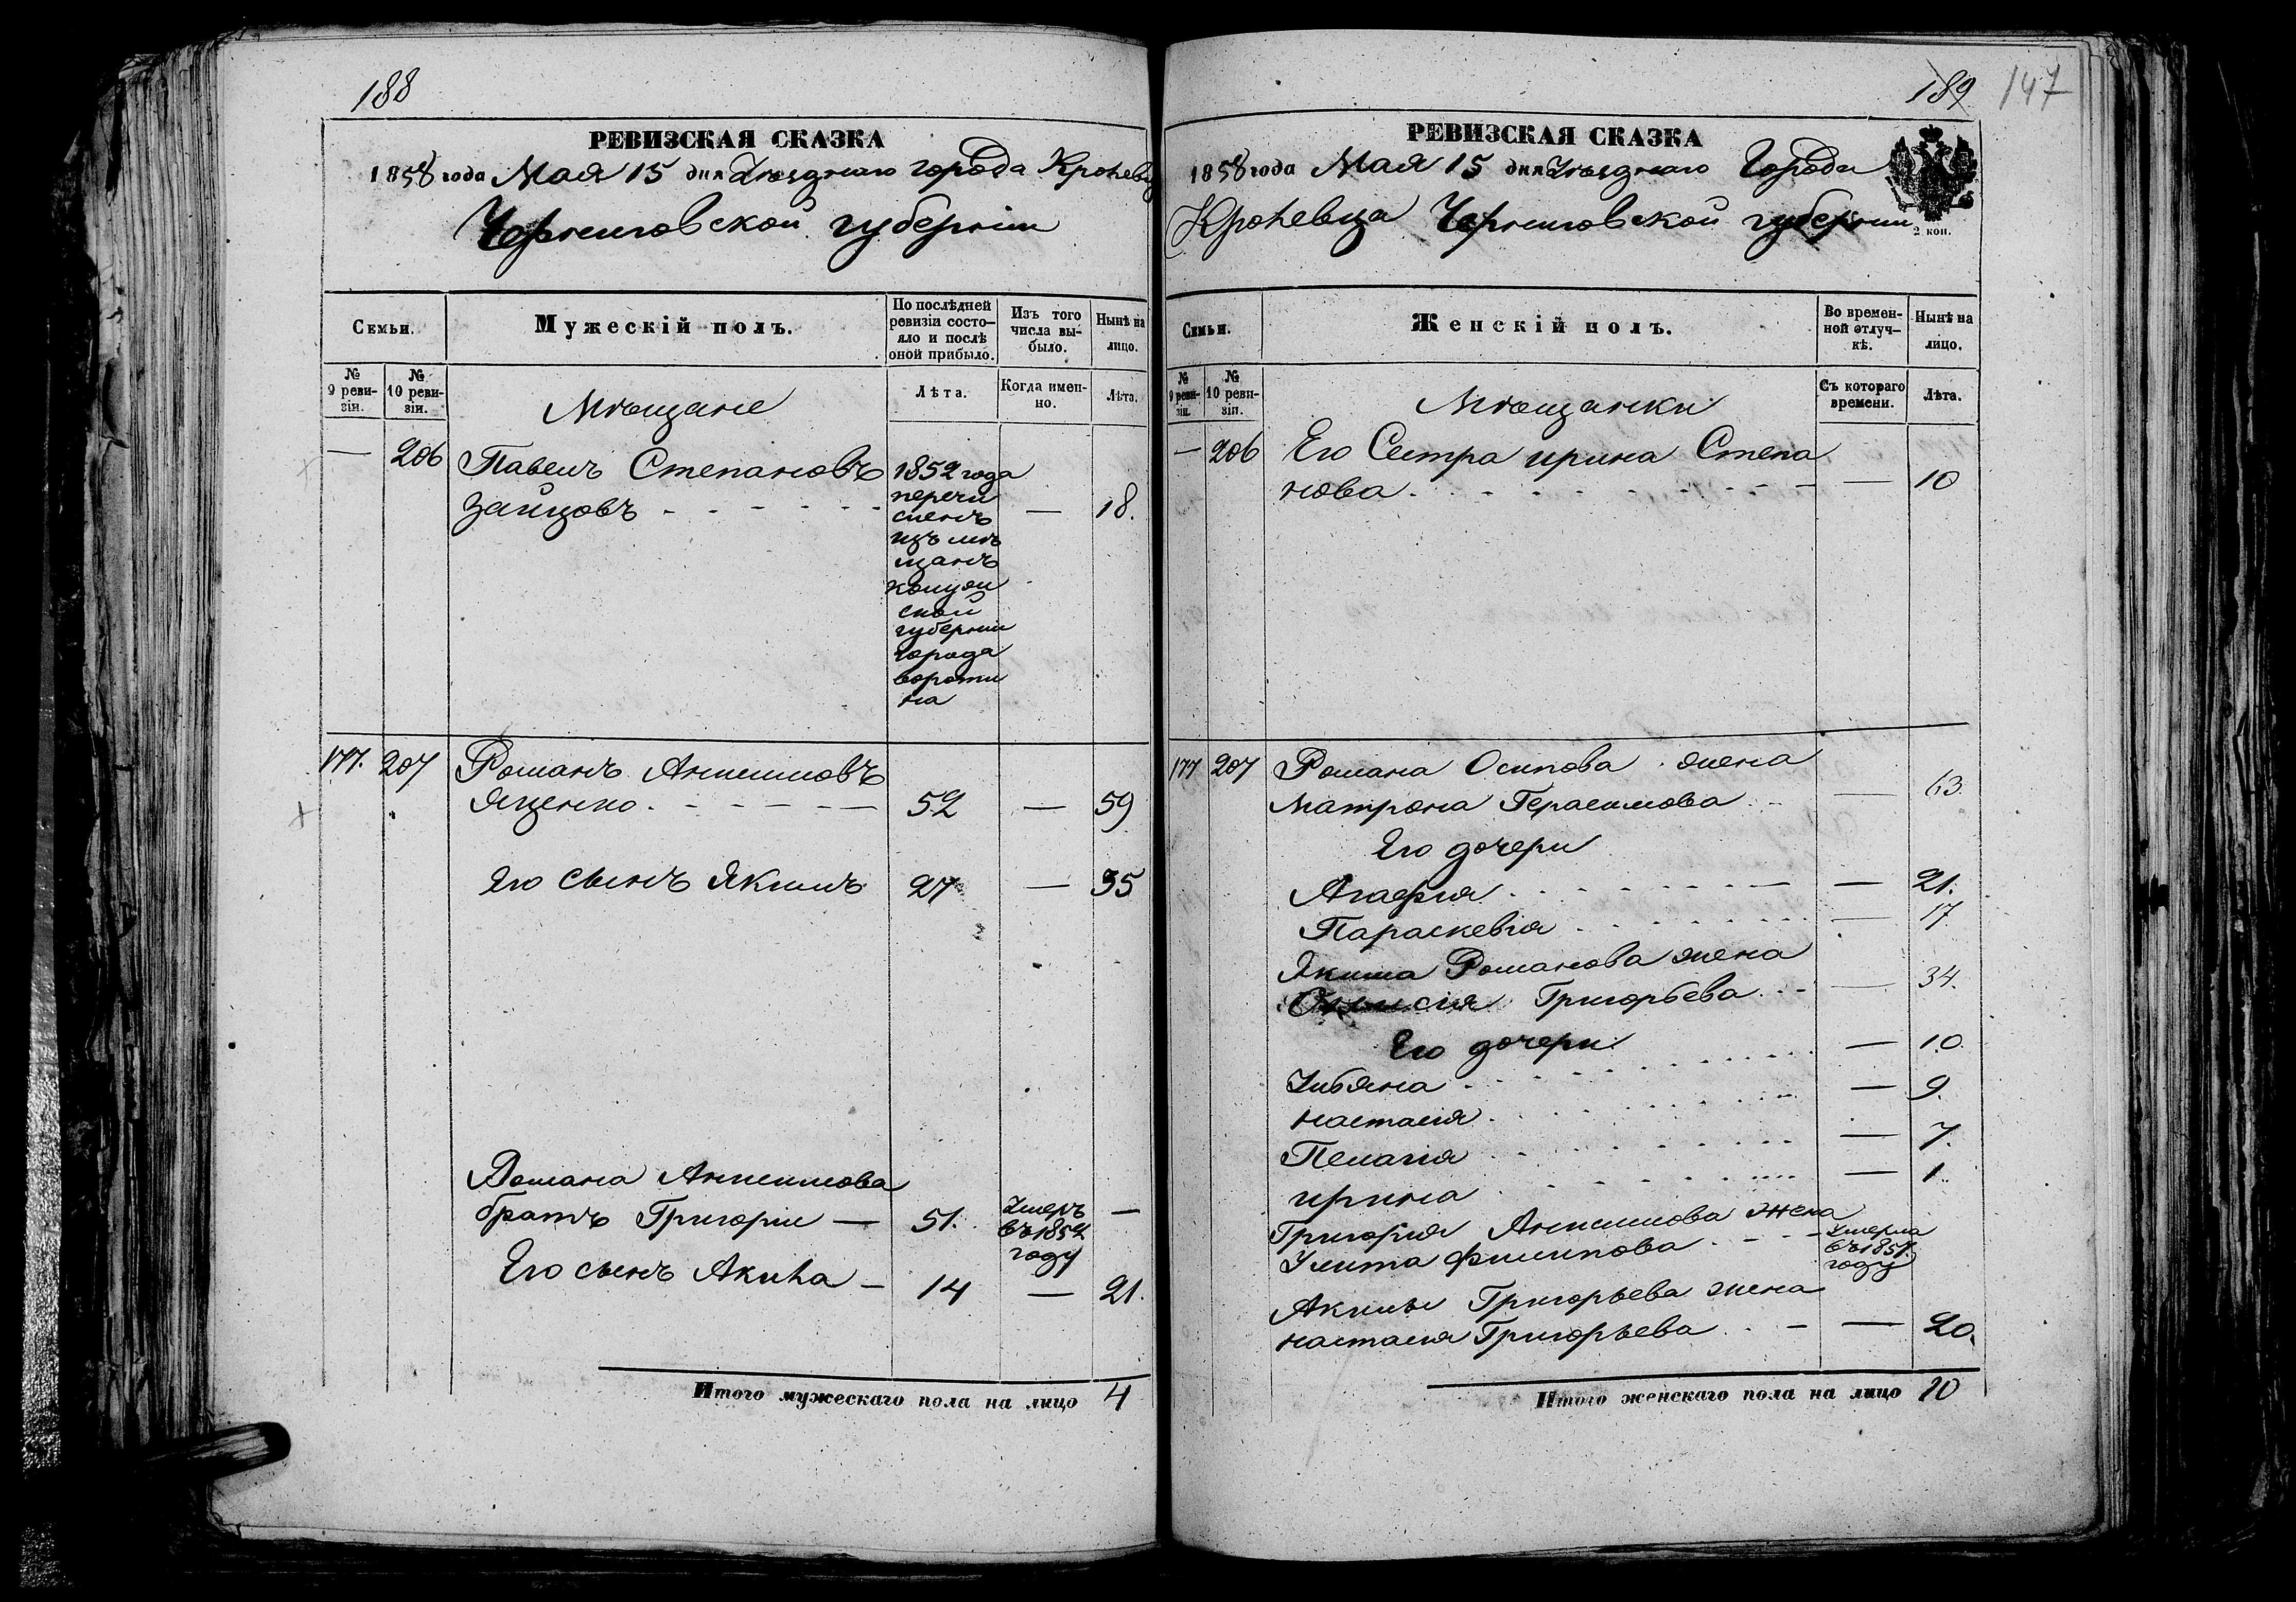 188
РЕВИЗСКАЯ СКАЗКА
1858 года Мая 15 дня Уѣзднаго города Кролевца
Черниговской губерніи
Семьи.
Мужескій полъ.
По послѣдней ревизіи состо-
яло и послѣ оной прибыло.
Изъ того числа вы-
было.
Нынѣ на лицо.
№ 9 реви-
зіи.
№ 10 реви-
зіи.
Мѣщане
Лѣта.
Когда имен-
но.
Лѣта.
— 206 Павелъ Степановъ
Зайцовъ — 18.
1852 года
перечи
сленъ
изъ мѣ
щанъ
губерніи
города
177. 207 Романъ Анисимовъ
Яценко 52 — 59
Его сынъ Якимъ 27 — 35
Романа Анисимова
братъ Григорій — 51. Умеръ —
въ 1852
году
Его сынъ Акила — 14 — 21.
Итого мужескаго пола на лицо 4
189 147
РЕВИЗСКАЯ СКАЗКА
1858 года Мая 15 дня Уѣзднаго Города
Кролевца Черниговской губерніи
2 коп.
Семьи.
Женскій полъ.
Во времен-
ной отлуч-
кѣ.
Нынѣ на лицо.
№ 9 реви-
зіи.
№ 10 реви-
зіи.
Мѣщанки
Съ котораго времени.
Лѣта.
— 206 Его Сестра ирина Степа
нова — 10
177 207 Романа Осипова жена
Матрона Герасимова — 63.
Его дочери
Агафія — 21.
Параскевія — 17.
Якима Романова жена
Григорьева — 34.
Его дочери — 10.
Ульяна — 9.
настасія
Пелагія — 7.
ирина — 1.
Григорія Анисимова жена
Улита Филипова Умерла
въ 1851.
году
Акилы Григорьева жена
настасія Григорьева — 20.
Итого женскаго пола на лицо 10